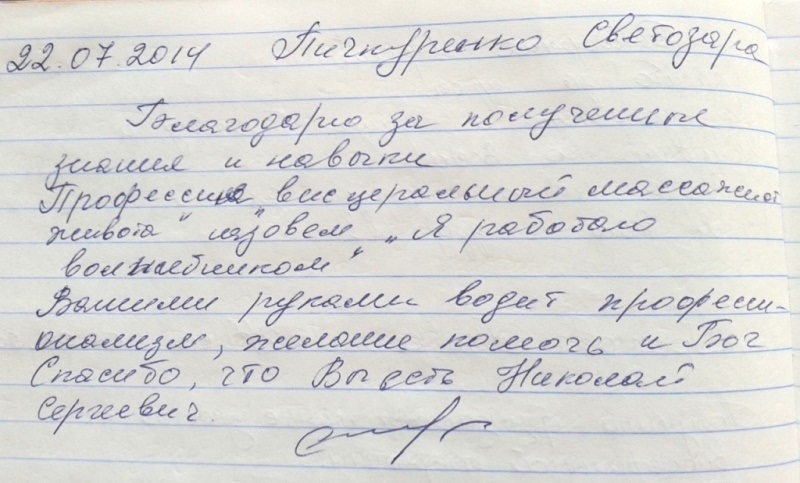 22.07.2014 Пичкуренко Светозара
Благодарю за полученные
знания и навыки
Профессию „висцеральный массажист
живота“ назовем „Я работаю
волшебником“
Вашими руками водит професси-
онализм, желание помочь и Бог
Спасибо, что Вы есть Николай
Сергеевич.